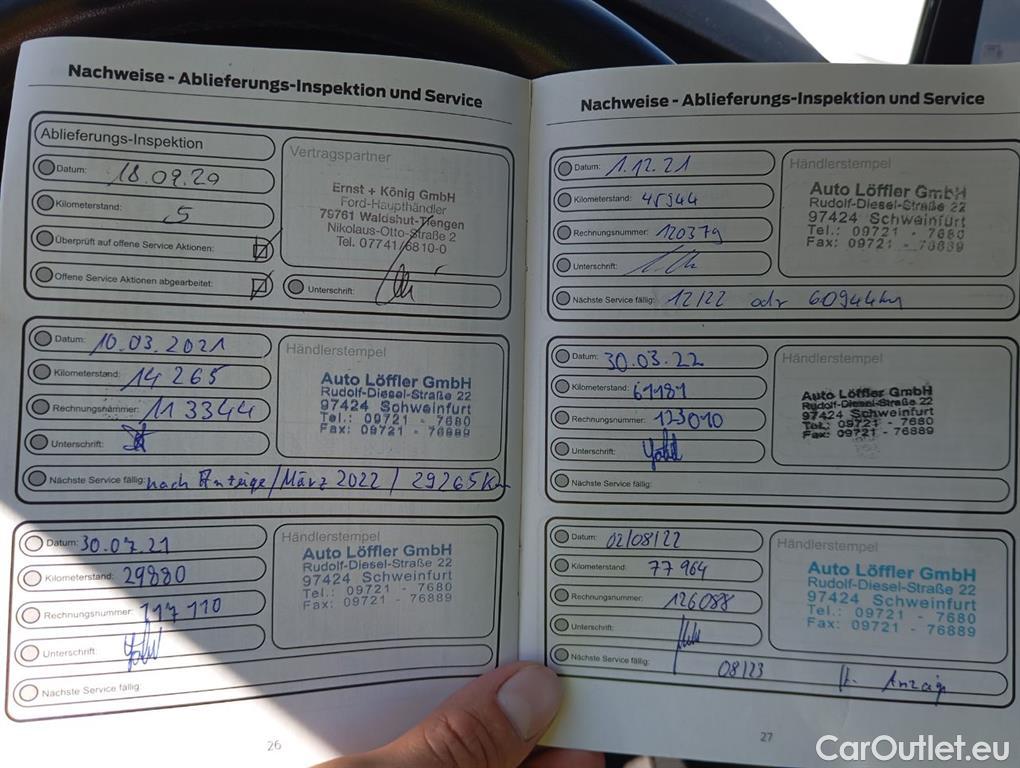 Nachweise - Ablieferungs-Inspektion und Service
Ablieferungs-Inspektion
Datum: 18.09.20
Kilometerstand: 5
Überprüft auf offene Service Aktionen:
Offene Service Aktionen abgearbeitet:
Vertragspartner
Ernst + König GmbH
Ford-Haupthändler
79761 Waldshut-Tiengen
Nikolaus-Otto-Straße 2
Tel. 07741/6810-0
Unterschrift:
Datum: 10.03.2021
Kilometerstand: 14 265
Rechnungsnummer: 113344
Unterschrift:
Händlerstempel
Auto Löffler GmbH
Rudolf-Diesel-Straße 22
97424 Schweinfurt
Tel.: 09721 - 7680
Fax: 09721 - 76889
Nächste Service fällig: nach Anzeige/März 2022 / 29265 Km
Datum: 30.07.21
Kilometerstand: 29880
Rechnungsnummer: 117 110
Unterschrift:
Händlerstempel
Auto Löffler GmbH
Rudolf-Diesel-Straße 22
97424 Schweinfurt
Tel.: 09721 - 7680
Fax: 09721 - 76889
Nächste Service fällig:
26
Nachweise - Ablieferungs-Inspektion und Service
Datum: 1.12.21
Kilometerstand: 45944
Rechnungsnummer: 120379
Unterschrift:
Händlerstempel
Auto Löffler GmbH
Rudolf-Diesel-Straße 22
97424 Schweinfurt
Tel.: 09721 - 7680
Fax: 09721 - 76889
Nächste Service fällig: 12/22 odr 60944km
Datum: 30.03.22
Kilometerstand: 61181
Rechnungsnummer: 123010
Unterschrift:
Händlerstempel
Auto Löffler GmbH
Rudolf-Diesel-Straße 22
97424 Schweinfurt
Tel.: 09721 - 7680
Fax: 09721 - 76889
Nächste Service fällig:
Datum: 02/08/22
Kilometerstand: 77964
Rechnungsnummer: 126088
Unterschrift:
Händlerstempel
Auto Löffler GmbH
Rudolf-Diesel-Straße 22
97424 Schweinfurt
Tel.: 09721 - 7680
Fax: 09721 - 76889
Nächste Service fällig: 08/23
27
CarOutlet.eu